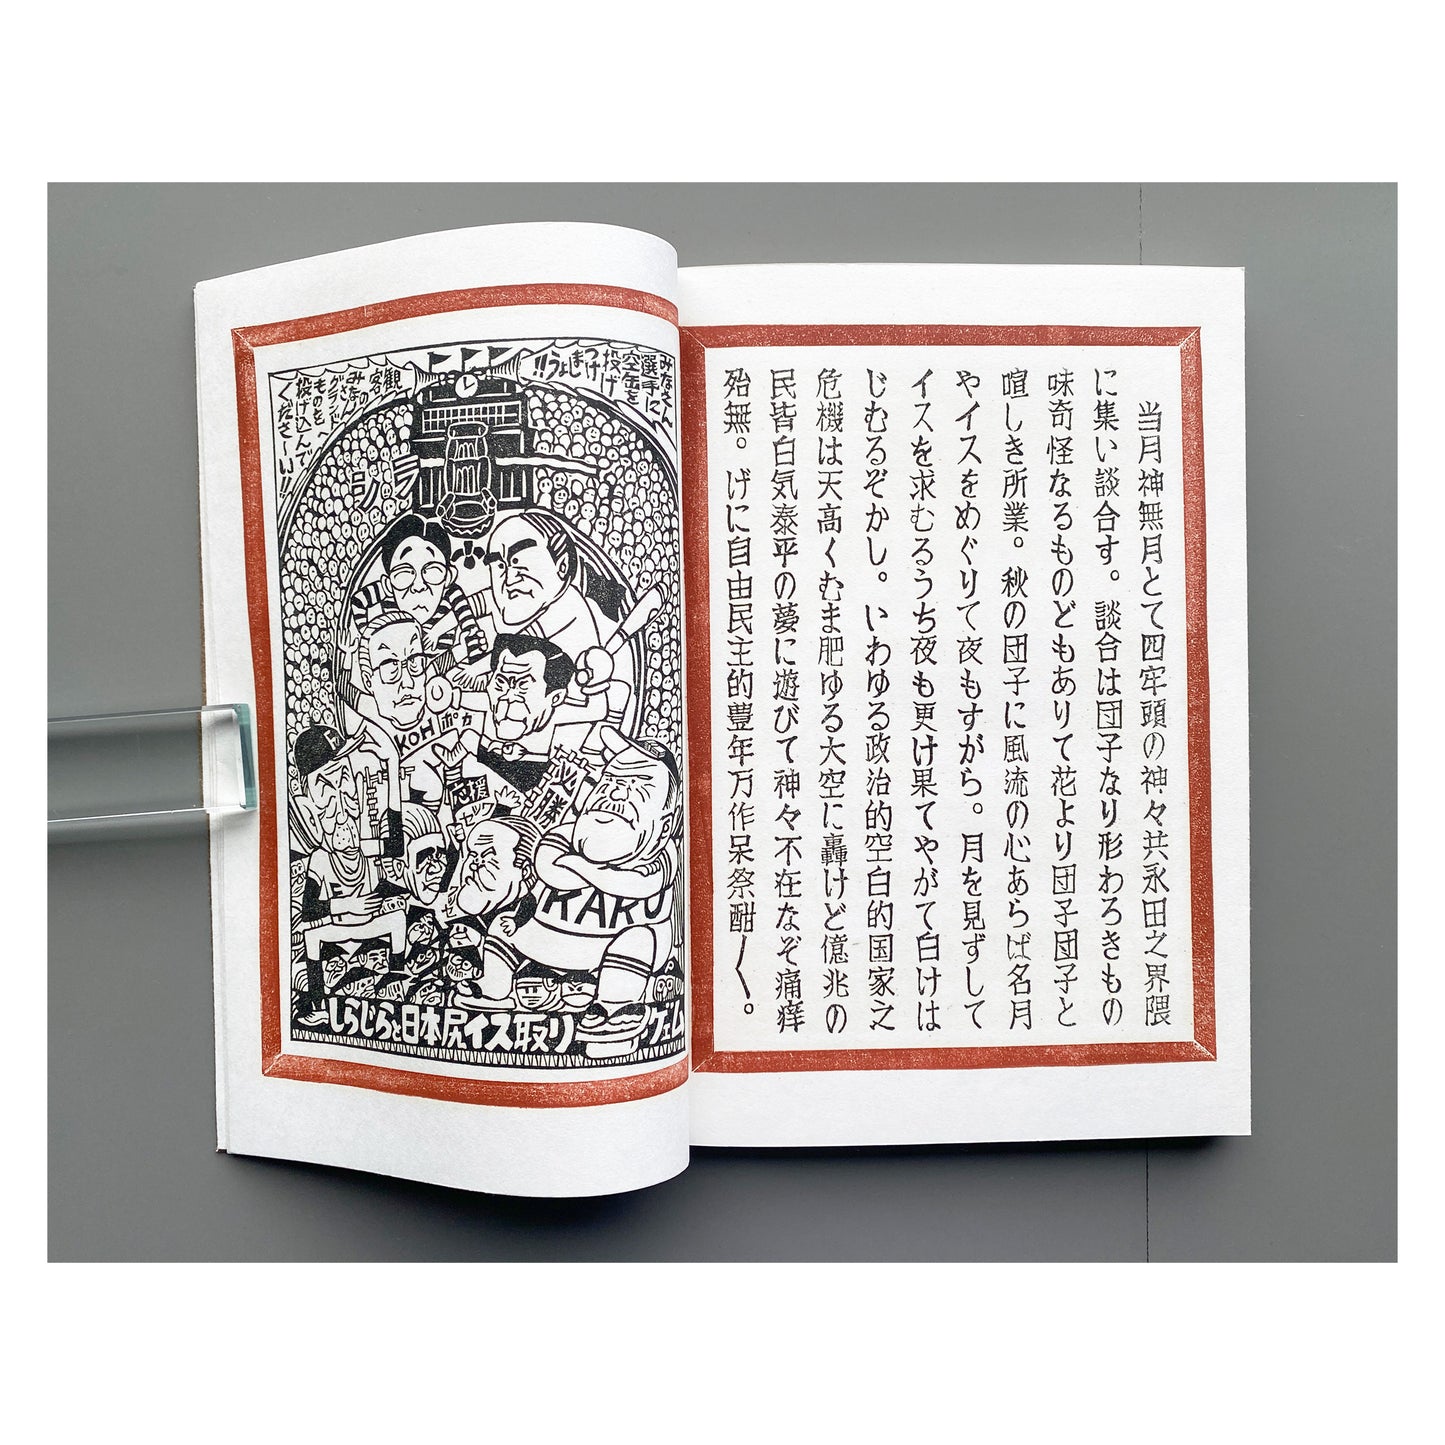 当月神無月とて四牢頭の神々共永田之界隈
に集い談合す。談合は団子なり形わろきもの
味奇怪なるものどもありて花より団子団子と
喧しき所業。秋の団子に風流の心あらば名月
やイスをめぐりて夜もすがら。月を見ずして
イスを求むるうち夜も更け果てやがて白けは
じむるぞかし。いわゆる政治的空白的国家之
危機は天高くむま肥ゆる大空に轟けど億兆の
民皆白気泰平の夢に遊びて神々不在なぞ痛痒
殆無。げに自由民主的豊年万作呆祭酣〱。
みなさん
選手に
空缶を
投げ
つけ
ましょう!!
観客
みなさんの
グランドへ
ものを
投げ込んで
くださーい!!
KOH
ポカ
必勝
応援
KAKU
しらじらと日本尻イス取りゲェム